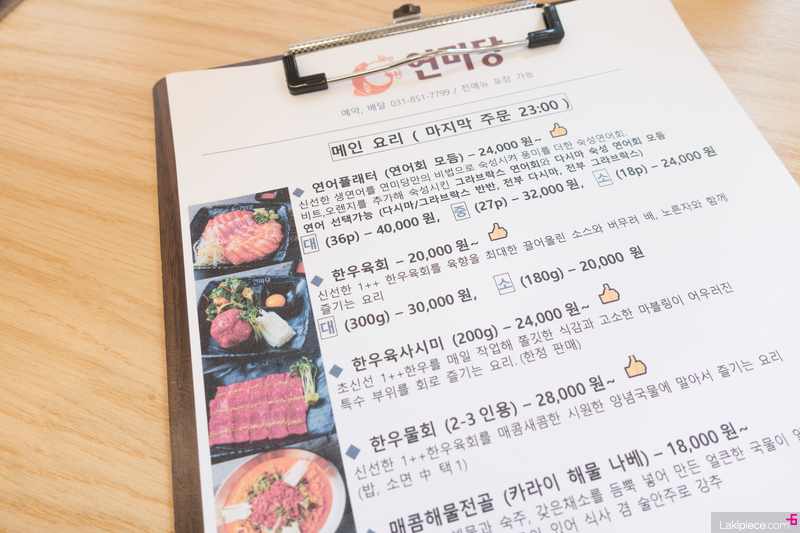 연미당
예약, 배달 031-851-7799 / 전메뉴 포장 가능
메인 요리 ( 마지막 주문 23:00 )
연어플래터 (연어회 모듬) – 24,000 원~
신선한 생연어를 연미당만의 비법으로 숙성시켜 풍미를 더한 숙성연어회.
비트,오렌지를 추가해 숙성시킨 그라브락스 연어회와 다시마 숙성 연어회 모듬
연어 선택가능 (다시마/그라브락스 반반, 전부 다시마, 전부 그라브락스)
대 (36p) – 40,000 원, 중 (27p) – 32,000 원, 소 (18p) – 24,000 원
한우육회 – 20,000 원~
신선한 1++ 한우육회를 육향을 최대한 끌어올린 소스와 버무려 배, 노른자와 함께
즐기는 요리
대 (300g) – 30,000 원, 소 (180g) – 20,000 원
한우육사시미 (200g) – 24,000 원~
초신선 1++한우를 매일 작업해 쫄깃한 식감과 고소한 마블링이 어우러진
특수 부위를 회로 즐기는 요리. (한정 판매)
한우물회 (2-3 인용) – 28,000 원~
신선한 1++한우육회를 매콤새콤한 시원한 양념국물에 말아서 즐기는 요리
(밥, 소면 中 택 1)
매콤해물전골 (카라이 해물 나베) – 18,000 원~
해물과 숙주, 갖은채소를 듬뿍 넣어 만든 얼큰한 국물이
있어 식사 겸 술안주로 강추
연미당
Lakipiece.com